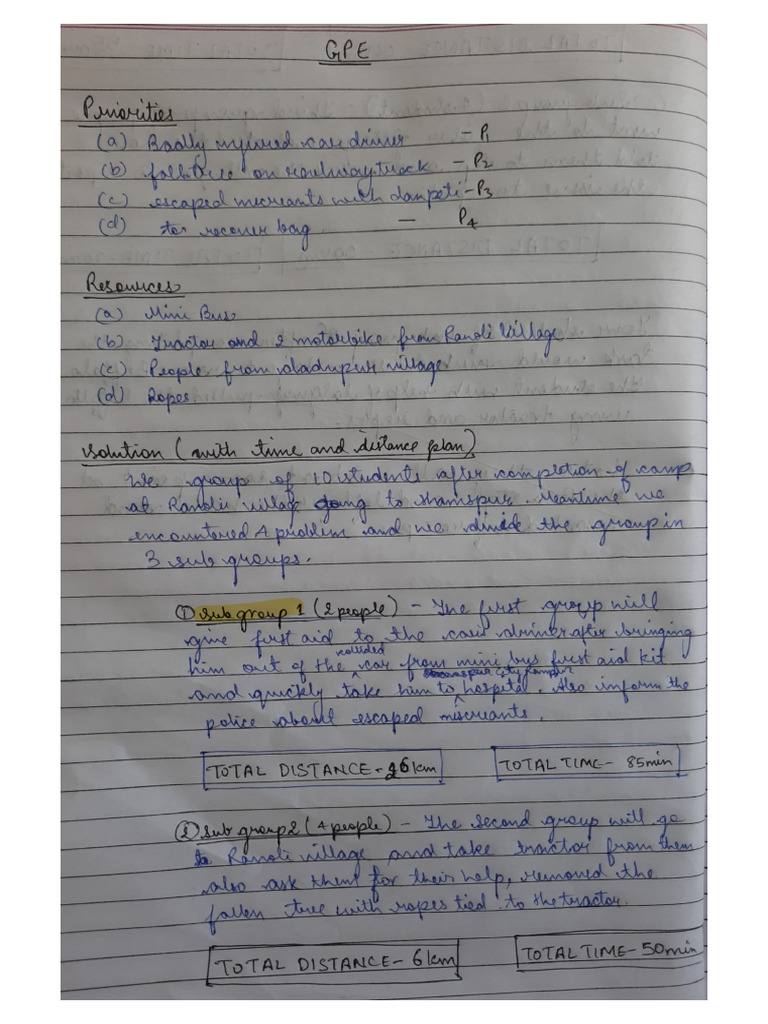 GPE
Priorities
(a) Badly injured car driver - P1
(b) fall tree on railway track - P2
(c) escaped micreants with dampati - P3
(d) to recover bag - P4
Resources
(a) Mini Bus
(b) Tractor and 2 motorbike from Ranoli Village
(c) People from village
(d) Ropes
Solution (with time and distance plan)
We group of 10 students after completion of camp
at Ranoli village going to Shamspur. Meantime we
encountered 4 problem and we divide the group in
3 sub groups.
① Sub group 1 (2 people) - The first group will
give first aid to the car driver after bringing
him out of the collided car from mini bus first aid kit
and quickly take him to city Rampur hospital. Also inform the
police about escaped miscreants.
TOTAL DISTANCE - 26km TOTAL TIME - 85min
② Sub group 2 (4 people) - The second group will go
to Ranoli village and take tractor from them
also ask them for their help, removed the
fallen tree with ropes tied to the tractor.
TOTAL DISTANCE - 6km TOTAL TIME - 50min